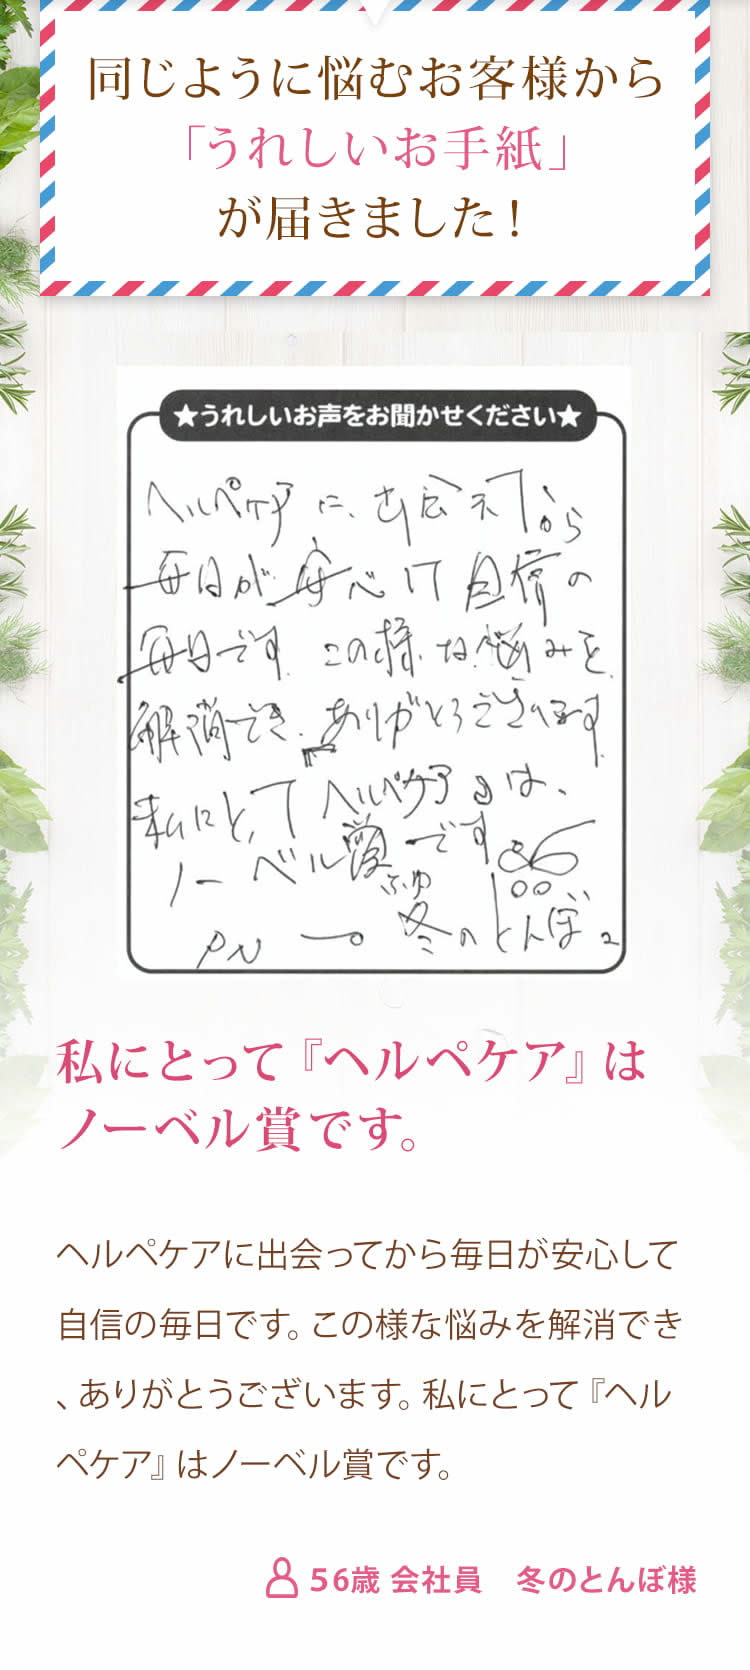 同じように悩むお客様から
「うれしいお手紙」
が届きました！
★うれしいお声をお聞かせください★
ヘルペケアに、出会ってから
毎日が安心して自信の
毎日です。この様な悩みを
解消でき、ありがとうございます。
私にとってヘルペケアは、
ノーベル賞です
ふゆ
PN 冬のとんぼ
私にとって『ヘルペケア』は
ノーベル賞です。
ヘルペケアに出会ってから毎日が安心して
自信の毎日です。この様な悩みを解消でき
、ありがとうございます。私にとって『ヘル
ペケア』はノーベル賞です。
56歳 会社員　冬のとんぼ様